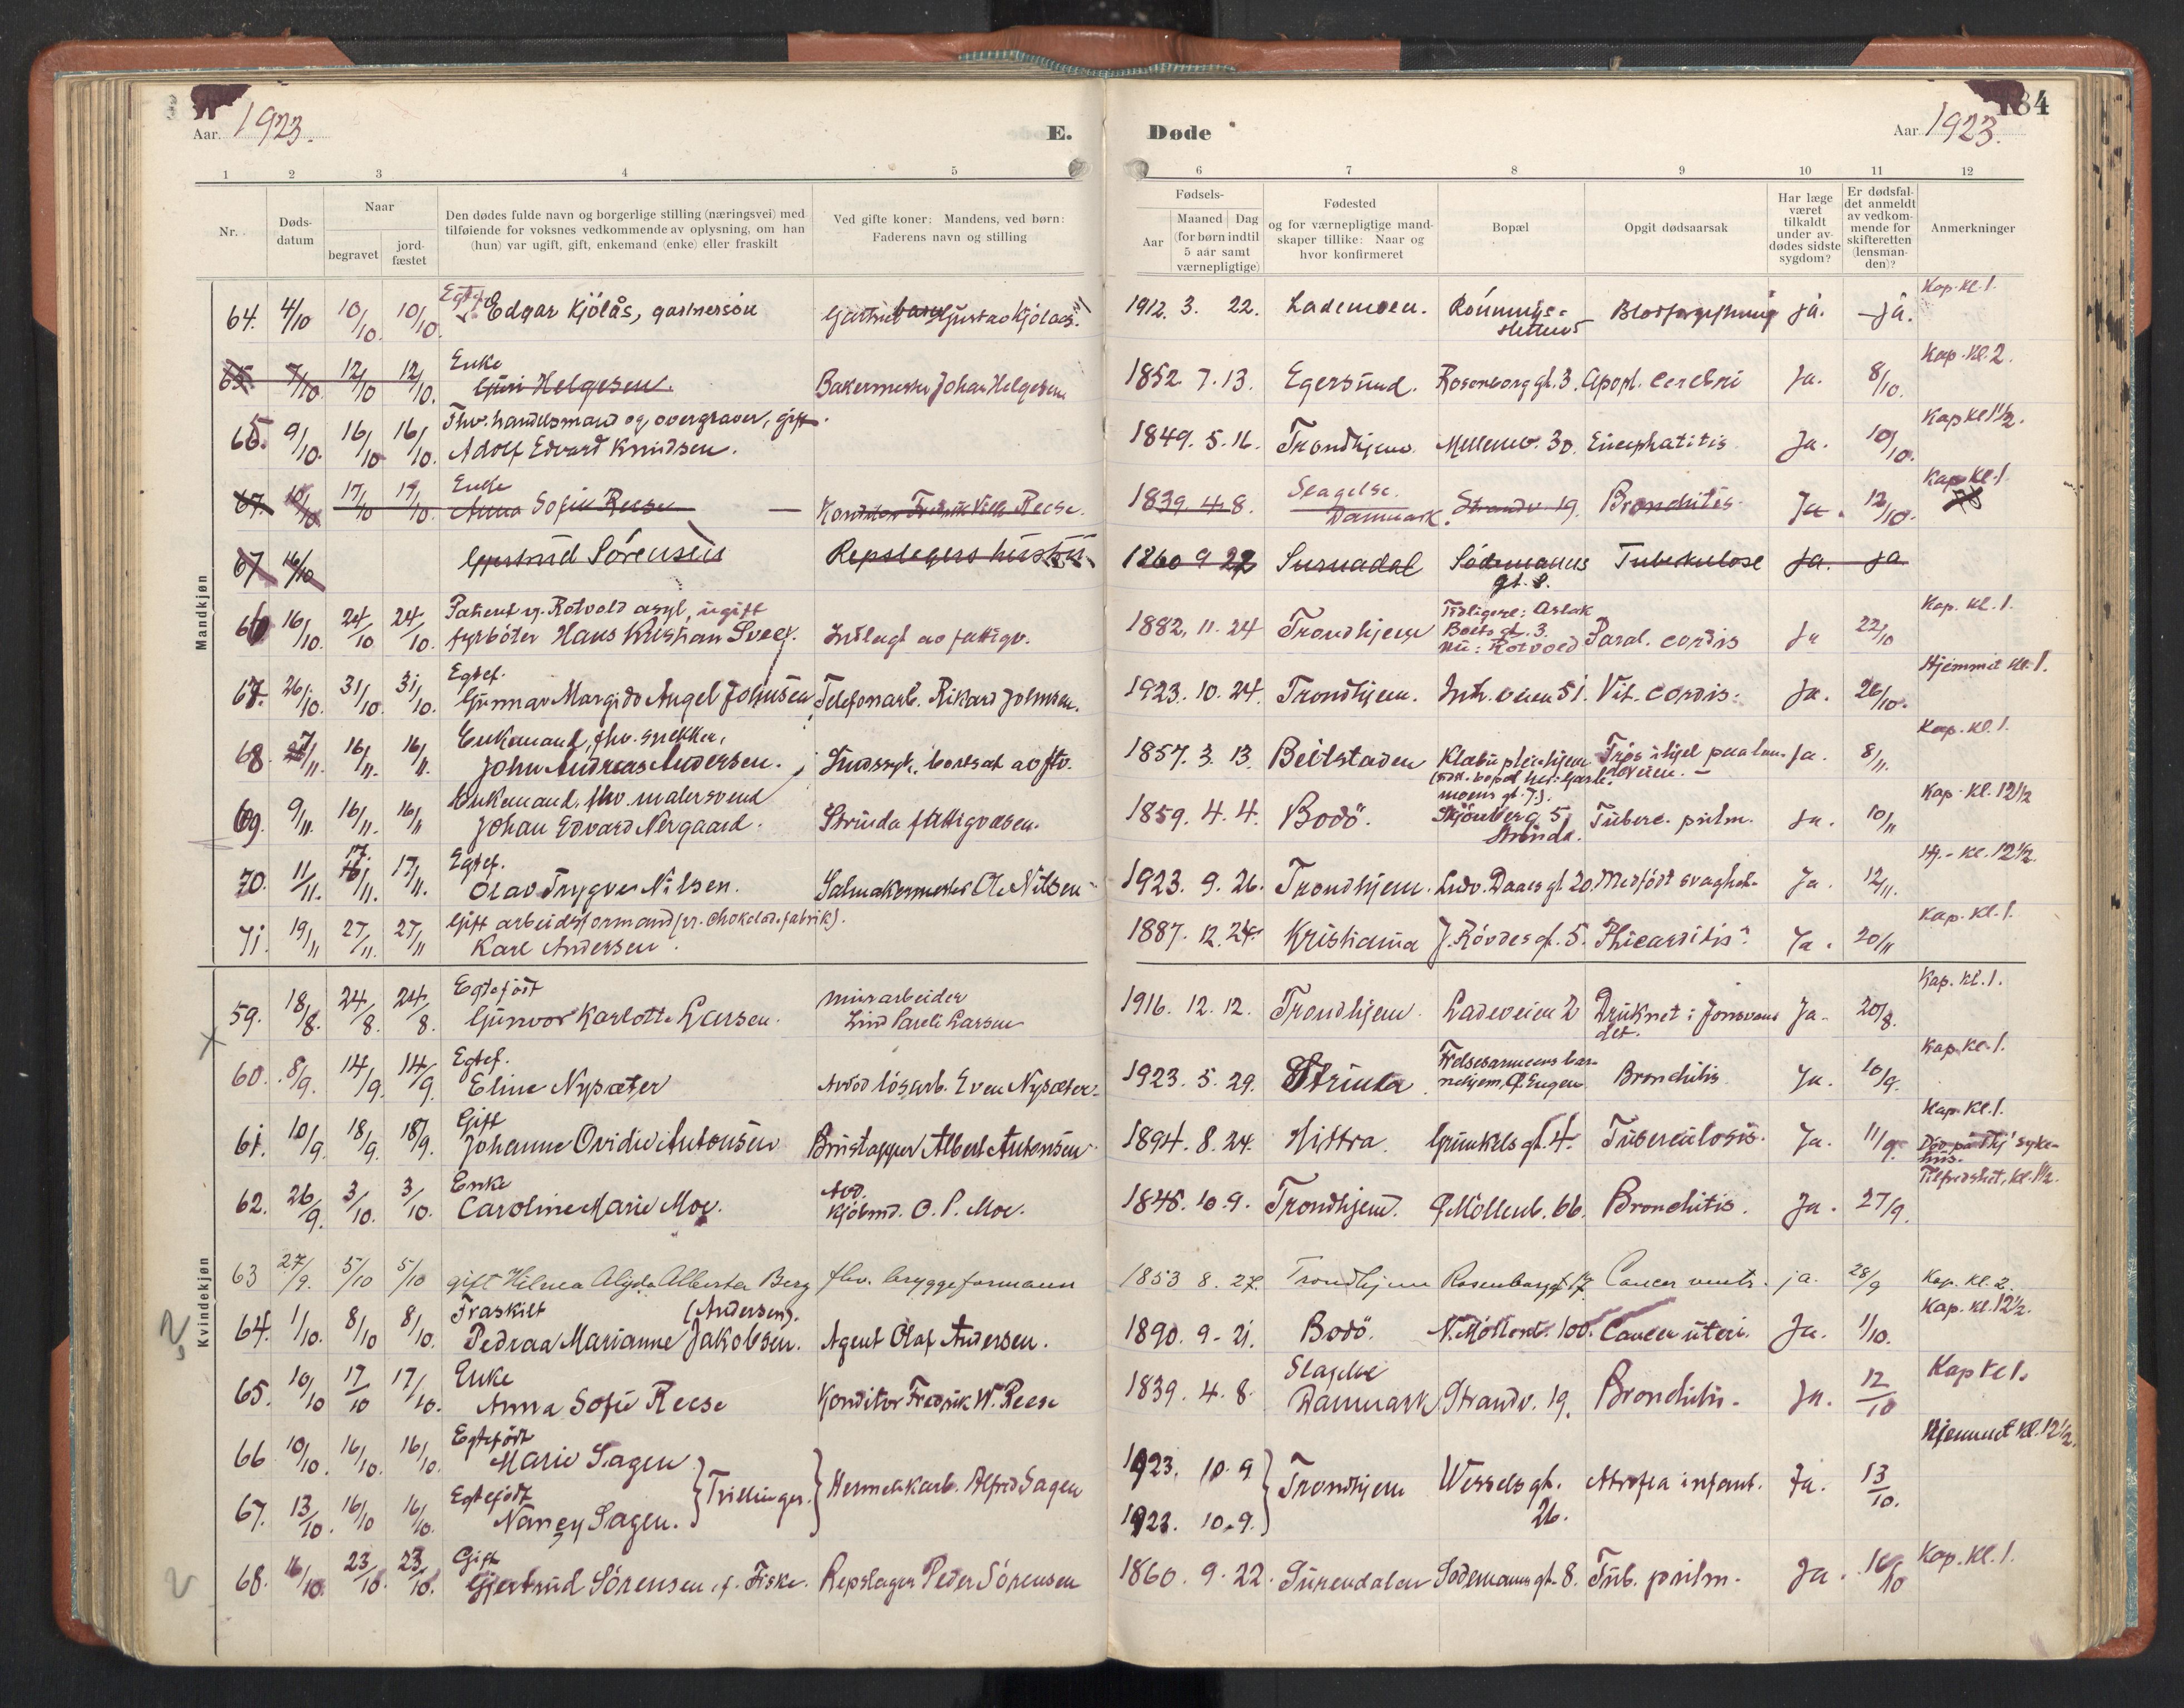 Aar 1923.
E.
Døde
Aar 1923.
184
1 2 3 4 5 6 7 8 9 10 11 12
Nr.
Døds-
datum
Naar
begravet
jord-
fæstet
Den dødes fulde navn og borgerlige stilling (næringsvei) med
tilføiende for voksnes vedkommende av oplysning, om han
(hun) var ugift, gift, enkemand (enke) eller fraskilt
Ved gifte koner: Mandens, ved børn:
Faderens navn og stilling
Fødsels-
Aar
Maaned Dag
(for børn indtil
5 aar samt
værnepligtige)
Fødested
og for værnepligtige mand-
skaper tillike: Naar og
hvor konfirmeret
Bopæl
Opgit dødsaarsak
Har læge
været
tilkaldt
under av-
dødes sidste
sygdom?
Er dødsfal-
det anmeldt
av vedkom-
mende for
skifteretten
(lensman-
den)?
Anmerkninger
Mandkjøn
Kap. kl. 1.
64. 4/10 10/10. 10/10. Edgar Kjölås, gartnersön Gustav Kjölaas 1912. 3. 22. Lademoen. Rönnings-
slettens Blodforgiftning ja. ja.
Enke Kap. kl. 2.
65. 7/10 12/10 12/10. Guri Helgesen. Bakermester Johan Helgesen 1852. 7. 13. Egersund. Rosenborg gt. 3. Apopl. cerebri Ja. 8/10.
Fhv. handelsmand og overgraver, gift. Kap kl 1½.
65. 9/10. 16/10 16/10. Adolf Edvard Knudsen. 1849. 5. 16. Trondhjem. Mellemv. 30. Encephatitis Ja. 10/10.
Enke Slagelse. Kap kl. 1
67. 10/10 17/10 17/10. Anna Sofie Reese Konditor Fredrik Vilh Reese. 1839. 4. 8. Danmark. Strandv 19. Bronchites. Ja. 12/10.
67 16/10 Gjertrud Sörensen Repslagers hustru 1860 9 22 Surnadal Södemanns
gt. 8. Tuberkulose Ja. ja
Patient v. Rotvold asyl, ugift Tidligere: Aslak Kap. kl. 1.
66 16/10. 24/10 24/10. fyrböter Hans Kristian Sveej. Indlagt av fattigv. 1882. 11. 24 Trondhjem Bolts gt. 3.
nu: Rotvold Paral. cordis Ja 22/10
Egtef. Hjemmet kl. 1.
67. 26/10. 31/10. 31/10. Gunnar Margido Angel Johnsen Telefonarb. Rikard Johnsen. 1923. 10. 24. Trondhjem. Inh. veien 51. Vit. cordis. Ja. 26/10.
Enkemand, fhv. snekker, Kap. kl. 1.
68. 7/11. 16/11. 16/11. John Andreas Andersen. Sindssyk. bortsat av ftv. 1857. 3. 13. Beitstaden Klæbu pleiehjem Ja. 8/11.
Enkemand, fhv. malersvend moens gt. 7). Kap. kl. 12½
69. 9/11. 16/11. 16/11 Johan Edvard Nergaard. Strinda fattigvæsen. 1859. 4. 4. Bodö. Skjönberg 5,
Strinda. Tuberc. pulm. Ja. 10/11
Egtef. Hj.- kl. 12½.
70. 11/11. 17/11. 17/11. Olav Trygve Nilsen. Salmakermester Ole Nilsen 1923. 9. 26. Trondhjem. Ludv. Daaes gt 20. Medfödt svaghet. Ja. 12/11.
Gift arbeidsformand (v. chokolade fabrik). Kap. kl. 1.
71. 19/11 27/11. 27/11 Karl Andersen. 1887. 12. 24. Kristiania J. Rövdes gt. 5. Ja. 20/11
Kvindekjøn
Egtefödt Murarbeider Kap. kl. 1.
59. 18/8. 24/8. 24/8. Gunvor Karlotte Larsen. Lind Pareli Larsen 1916. 12. 12. Trondhjem. Ladeveien 2 Druknet i Jonsvand
det. Ja. 20/8.
Egtef. Frelsesarmeens bar- Kap kl. 1.
60. 8/9. 14/9. 14/9. Eline Nysæter Avdöd lösarb. Even Nysæter. 1923. 5. 29. Strinda. nehjem, Bronchitis Ja. 10/9.
Gift Kap. kl. 1.
61. 10/9. 18/9. 18/9. Johanne Ovidie Antonsen Brustapper Albert Antonsen 1894. 8. 24. Hittra. Gunkels gt. 4. Tuberculosis. Ja. 11/9. Död på Thj sykehus.
Enke Avd. Tilfredshet, kl. 1½.
62. 26/9. 3/10. 3/10. Caroline Marie Moe. Kjöbmd. O. P. Moe. 1845. 10. 9. Trondhjem. Ö. Möllenb. 66. Bronchitis. Ja. 27/9.
63 27/9. 5/10 5/10 gift Hilma Alyda Alberta Berg fhv. bryggeformann 1853 8. 27. Trondhjem Rosenborggt 17 Cancer ventr. ja. 28/9 Kap. kl. 2.
Fraskilt (Andersen). Kap. kl. 12½.
64. 1/10. 8/10 8/10. Pedraa Marianne Jakobsen. Agent Olaf Andersen. 1890. 9. 21. Bodö. N. Möllenb. 100. Cancer uteri. Ja. 1/10.
Enke Slagelse Kap kl 1.
65. 10/10 17/10 17/10. Anna Sofie Reese Konditor Fredrik W. Reese 1839. 4. 8. Danmark Strandv. 19. Bronchitis. Ja. 12/10
Egtefödt Hjemmet kl. 12½.
66 10/10. 16/10. 16/10. Marie Sagen } Trillinger. } Hermetikarb. Alfred Sagen 1923. 10. 9. } Trondhjem Wessels gt.
26. Atrofia infant. Ja. 13/10.
Egtefödt
67. 13/10. 16/10 16/10. Nancy Sagen. 1923. 10. 9.
Gift Kap. kl. 1.
68. 16/10. 23/10. 23/10. Gjertrud Sörensen, f. Fiske. Repslager Peder Sörensen 1860. 9. 22. Surendalen Sodemanns gt. 8. Tub. pulm. Ja. 16/10